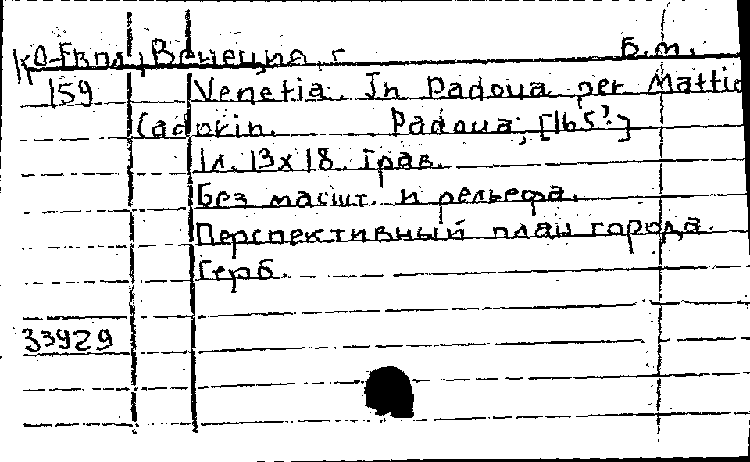 КО-Евпл, Венеция, г. Б.м.
159 Venetia. In Padoua per Mattio
Cadorin. Padoua, [165?]
1л. 13х18. Грав.
Без масшт. и рельефа.
Перспективный план города.
Герб.
33929